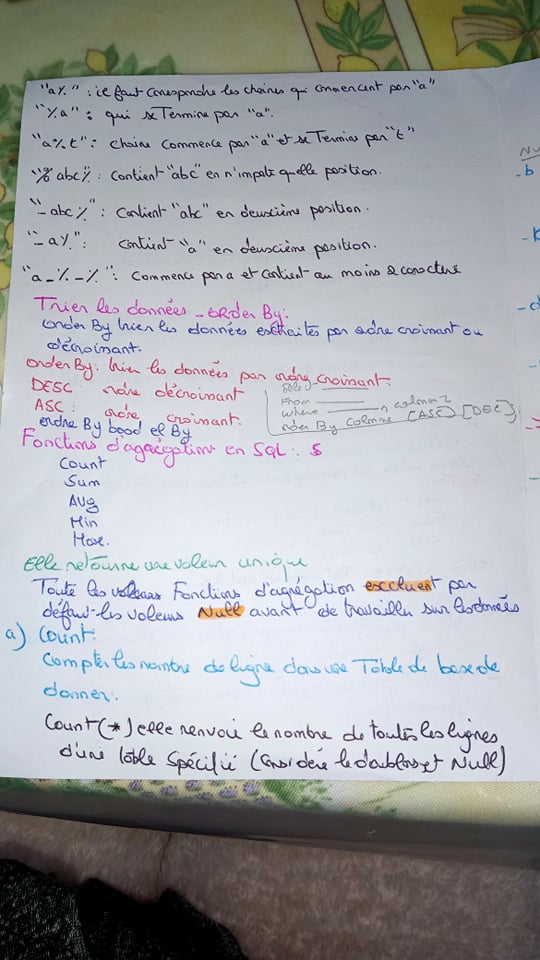 "a%" : il faut correspondre les chaines qui commencent par "a"
"%a" : qui se Termine par "a".
"a%t" : chaine commence par "a" et se Termine par "t"
"%abc%" : contient "abc" en n'importe quelle position.
"_abc%" : contient "abc" en deuxième position.
"_a%" : contient "a" en deuxième position.
"a_%_%" : commence par a et contient au moins 2 caractère
Trier les données _ ORDER By:
order By trier les données extraites par ordre croisant ou
décroisant.
order By: trier les données par ordre croisant.
DESC : ordre décroisant
ASC : ordre croisant.
ordre By
Sele
From
where
order By Colonne [ASC] [DEC];
, colonne 2
Fonctions d'agrégations en SQL: 5
Count
Sum
AVG
Min
Max.
Elle retourne une valeur unique
Toute les Fonctions d'agrégation excluent par
défaut les valeurs Null avant de travailler sur les données
a) Count:
Compter les nombre de ligne dans une Table de base de
donner.
Count(*) elle renvoie le nombre de toutes les lignes
d'une table spécifié (considère le doublons et Null)
Nu
- b